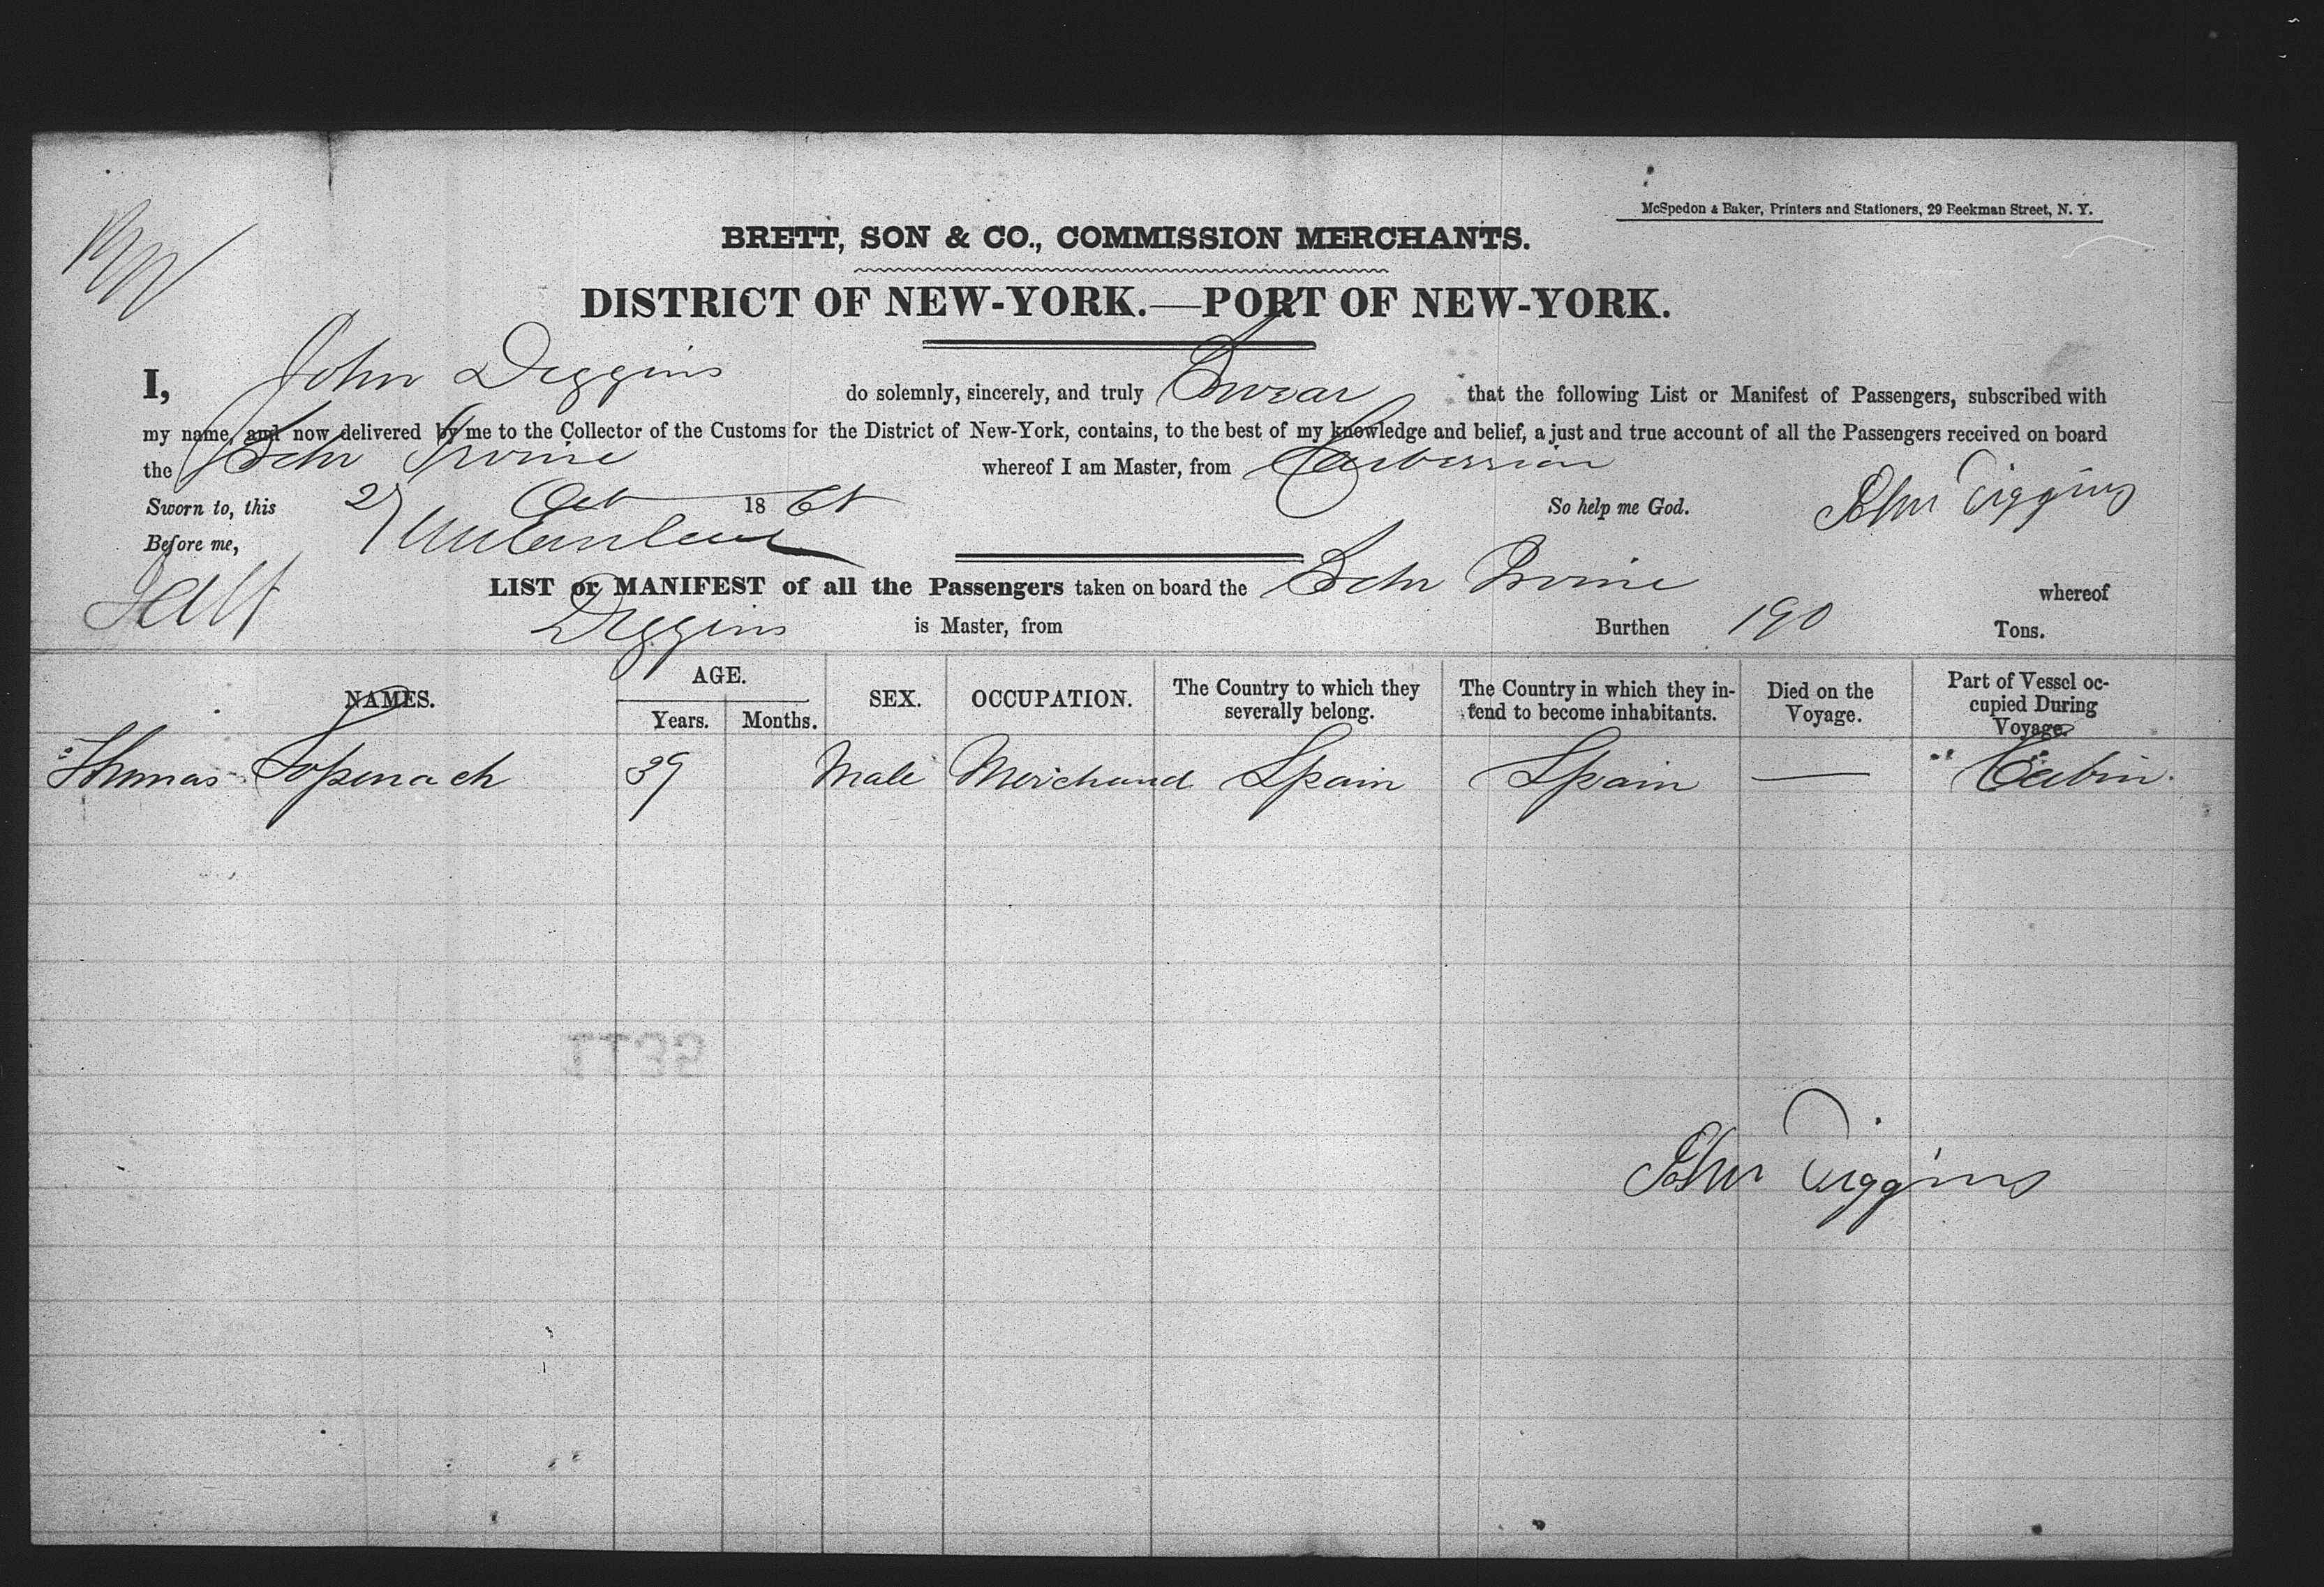 McSpedon & Baker, Printers and Stationers, 29 Beekman Street, N. Y.
BRETT, SON & CO., COMMISSION MERCHANTS.
DISTRICT OF NEW-YORK.—PORT OF NEW-YORK.
I, John Diggins do solemnly, sincerely, and truly Swear that the following List or Manifest of Passengers, subscribed with
my name, and now delivered by me to the Collector of the Customs for the District of New-York, contains, to the best of my knowledge and belief, a just and true account of all the Passengers received on board
the Schr Irvine whereof I am Master, from
Sworn to, this 27 Oct 18 So help me God. John Diggins
Before me,
LIST or MANIFEST of all the Passengers taken on board the Schr Irvine whereof
Diggins is Master, from Burthen 190 Tons.
NAMES. AGE. Years. Months. SEX. OCCUPATION. The Country to which they severally belong. The Country in which they intend to become inhabitants. Died on the Voyage. Part of Vessel occupied During Voyage.
Thomas Sopenach 39 Male Merchand Spain Spain — Cabin
John Diggins